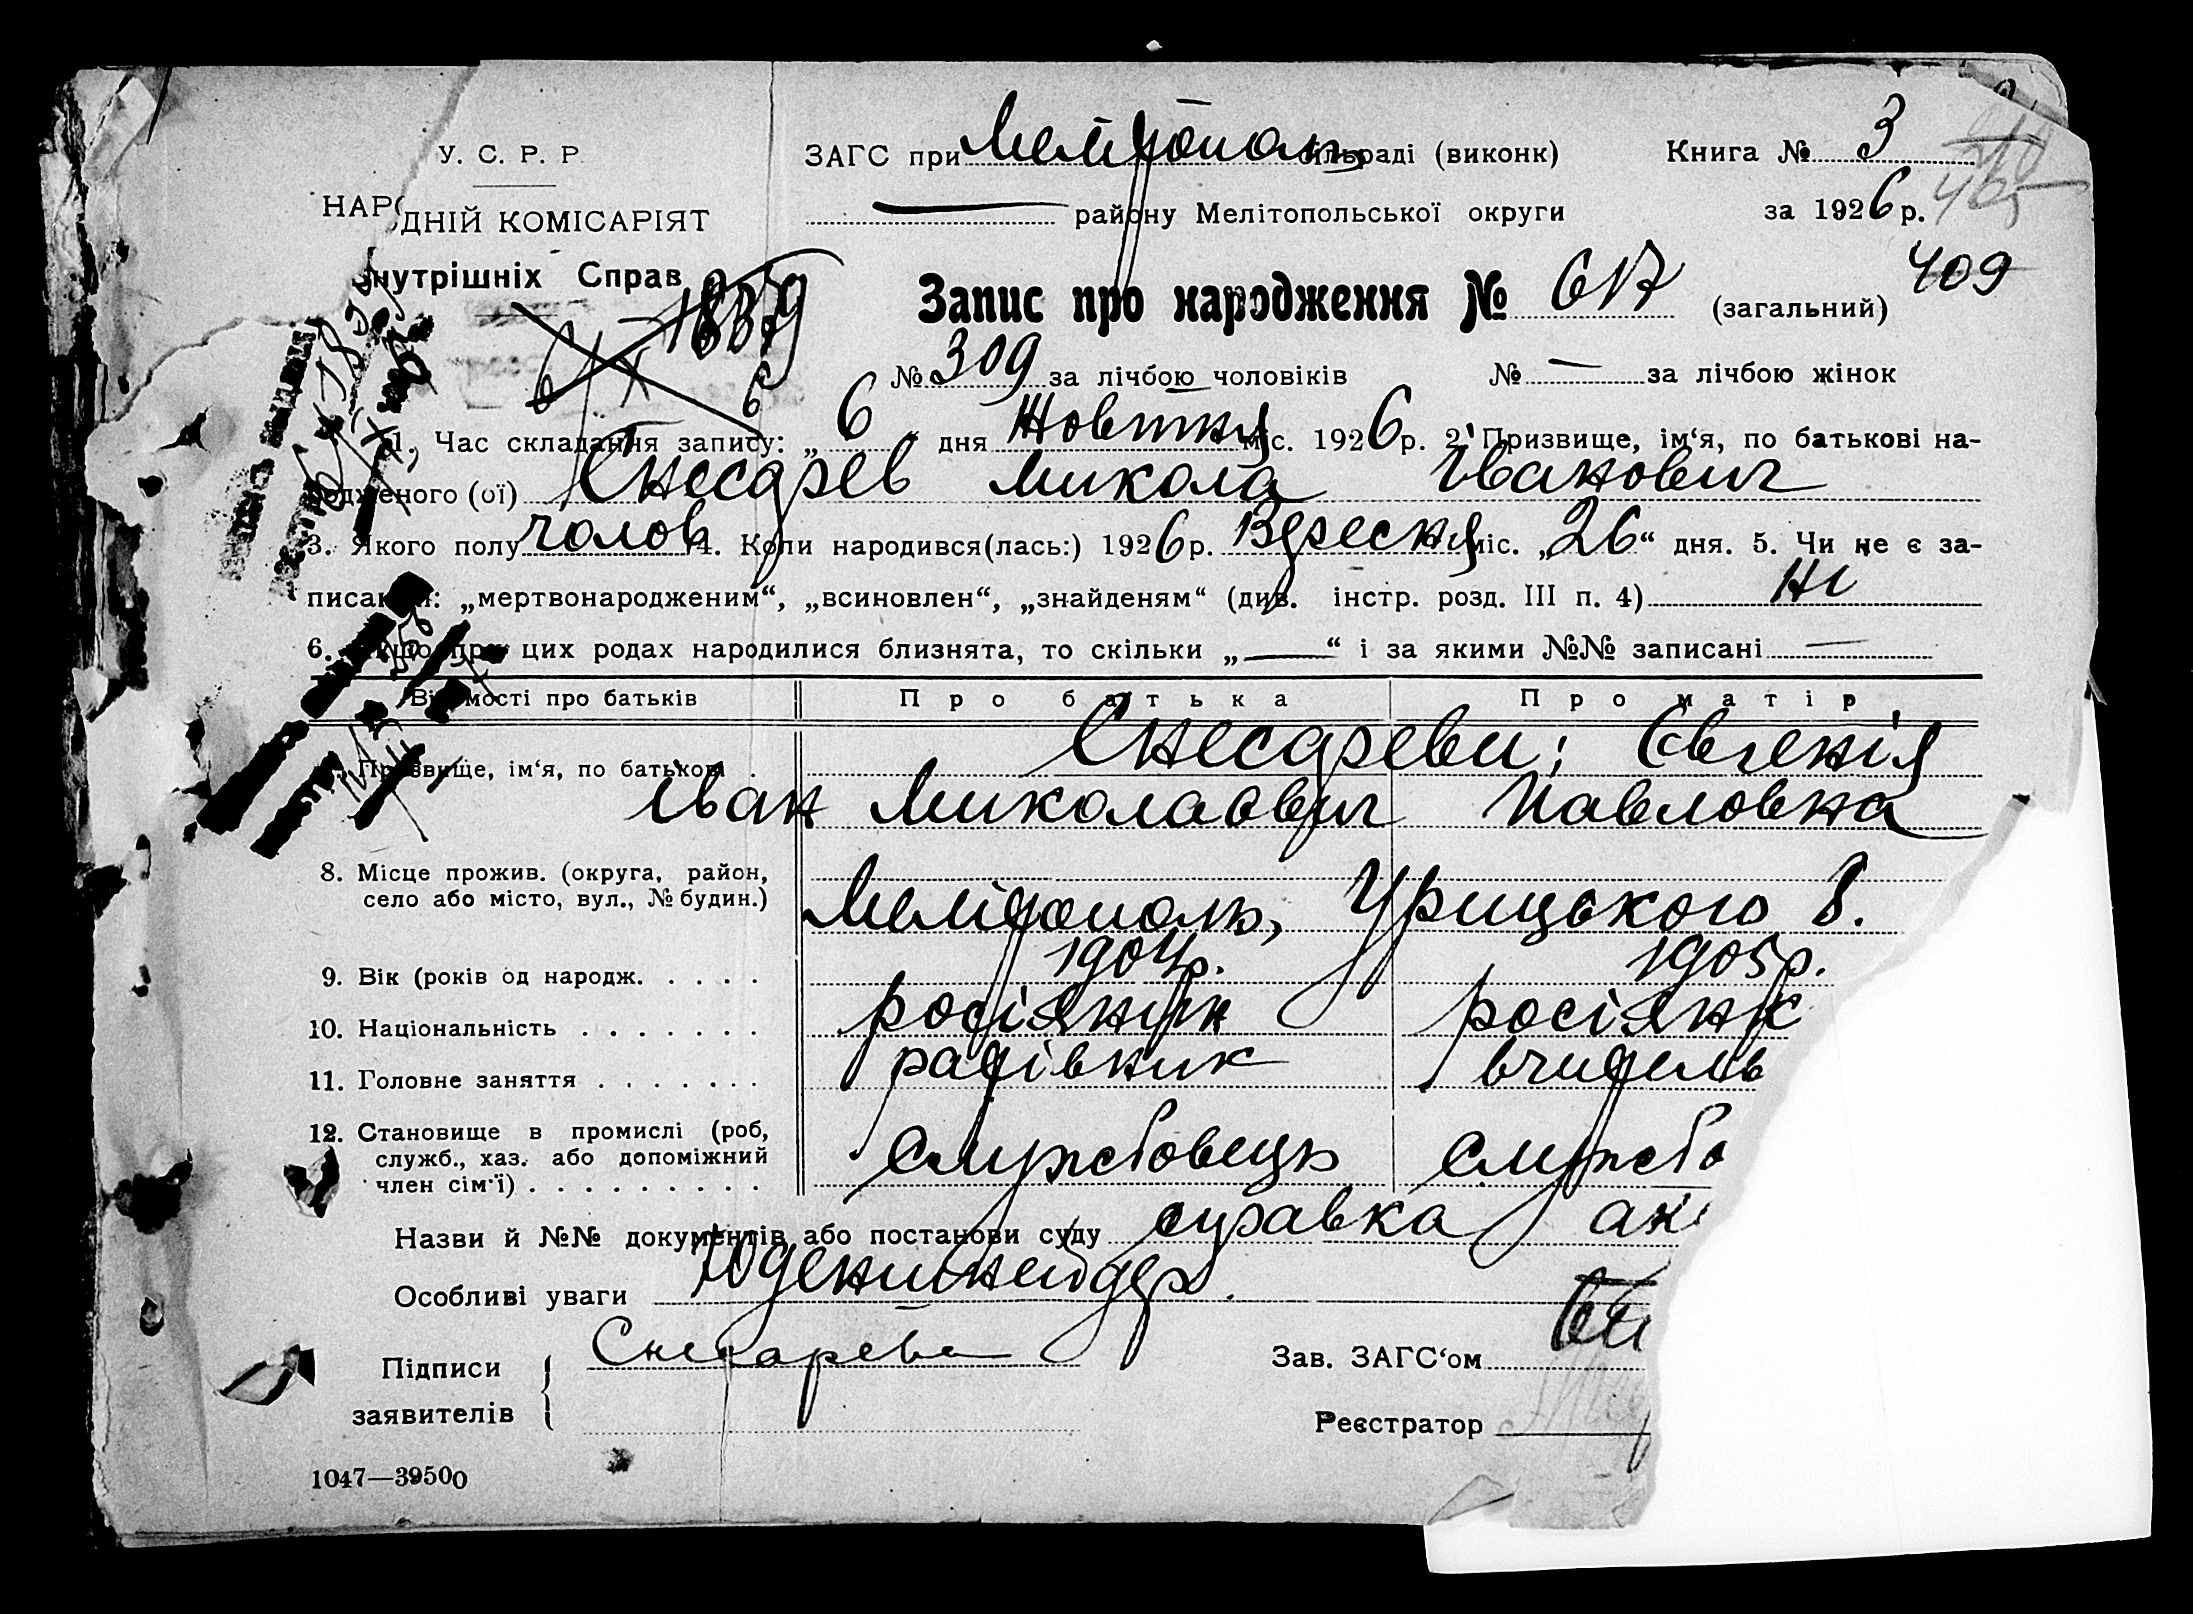 У. С. Р. Р.
НАРОДНІЙ КОМІСАРІЯТ
Внутрішніх Справ
ЗАГС при Мелітополь сільраді (виконк)
Книга № 3
— району Мелітопольської округи
за 1926 р.
Запис про народження № 617 (загальний)
409
№ 309 за лічбою чоловіків № — за лічбою жінок
1. Час складання запису: „ 6 “ дня Жовтня міс. 1926 р. 2. Призвище, ім‘я, по батькові на-
родженого (ої) Снесарев Микола Іванович
3. Якого полу чолов 4. Коли народився(лась:) 1926 р. Вересня міс. „26“ дня. 5. Чи не є за-
писаним: „мертвонародженим“, „всиновлен“, „знайденям“ (див. інстр. розд. III п. 4) ні
6. Якщо при цих родах народилися близнята, то скільки „—“ і за якими №№ записані —
Відомості про батьків Про батька Про матір
7. Призвище, ім‘я, по батькові Снесареви: Євгенія
Іван Миколаович Павловна
8. Місце прожив. (округа, район,
село або місто, вул., № будин.) Мелітополь, Урицького 8.
9. Вік (років од народж. 1904р. 1905р.
10. Національність росіянин росіянк
11. Головне заняття робівник вчитель
12. Становище в промислі (роб,
служб., хаз. або допоміжний
член сім‘ї) службовець службо
Назви й №№ документів або постанови суду справка ак
Особливі уваги
Підписи
заявителів Снесарева
Зав. ЗАГС‘ом
Реєстратор
1047—39500